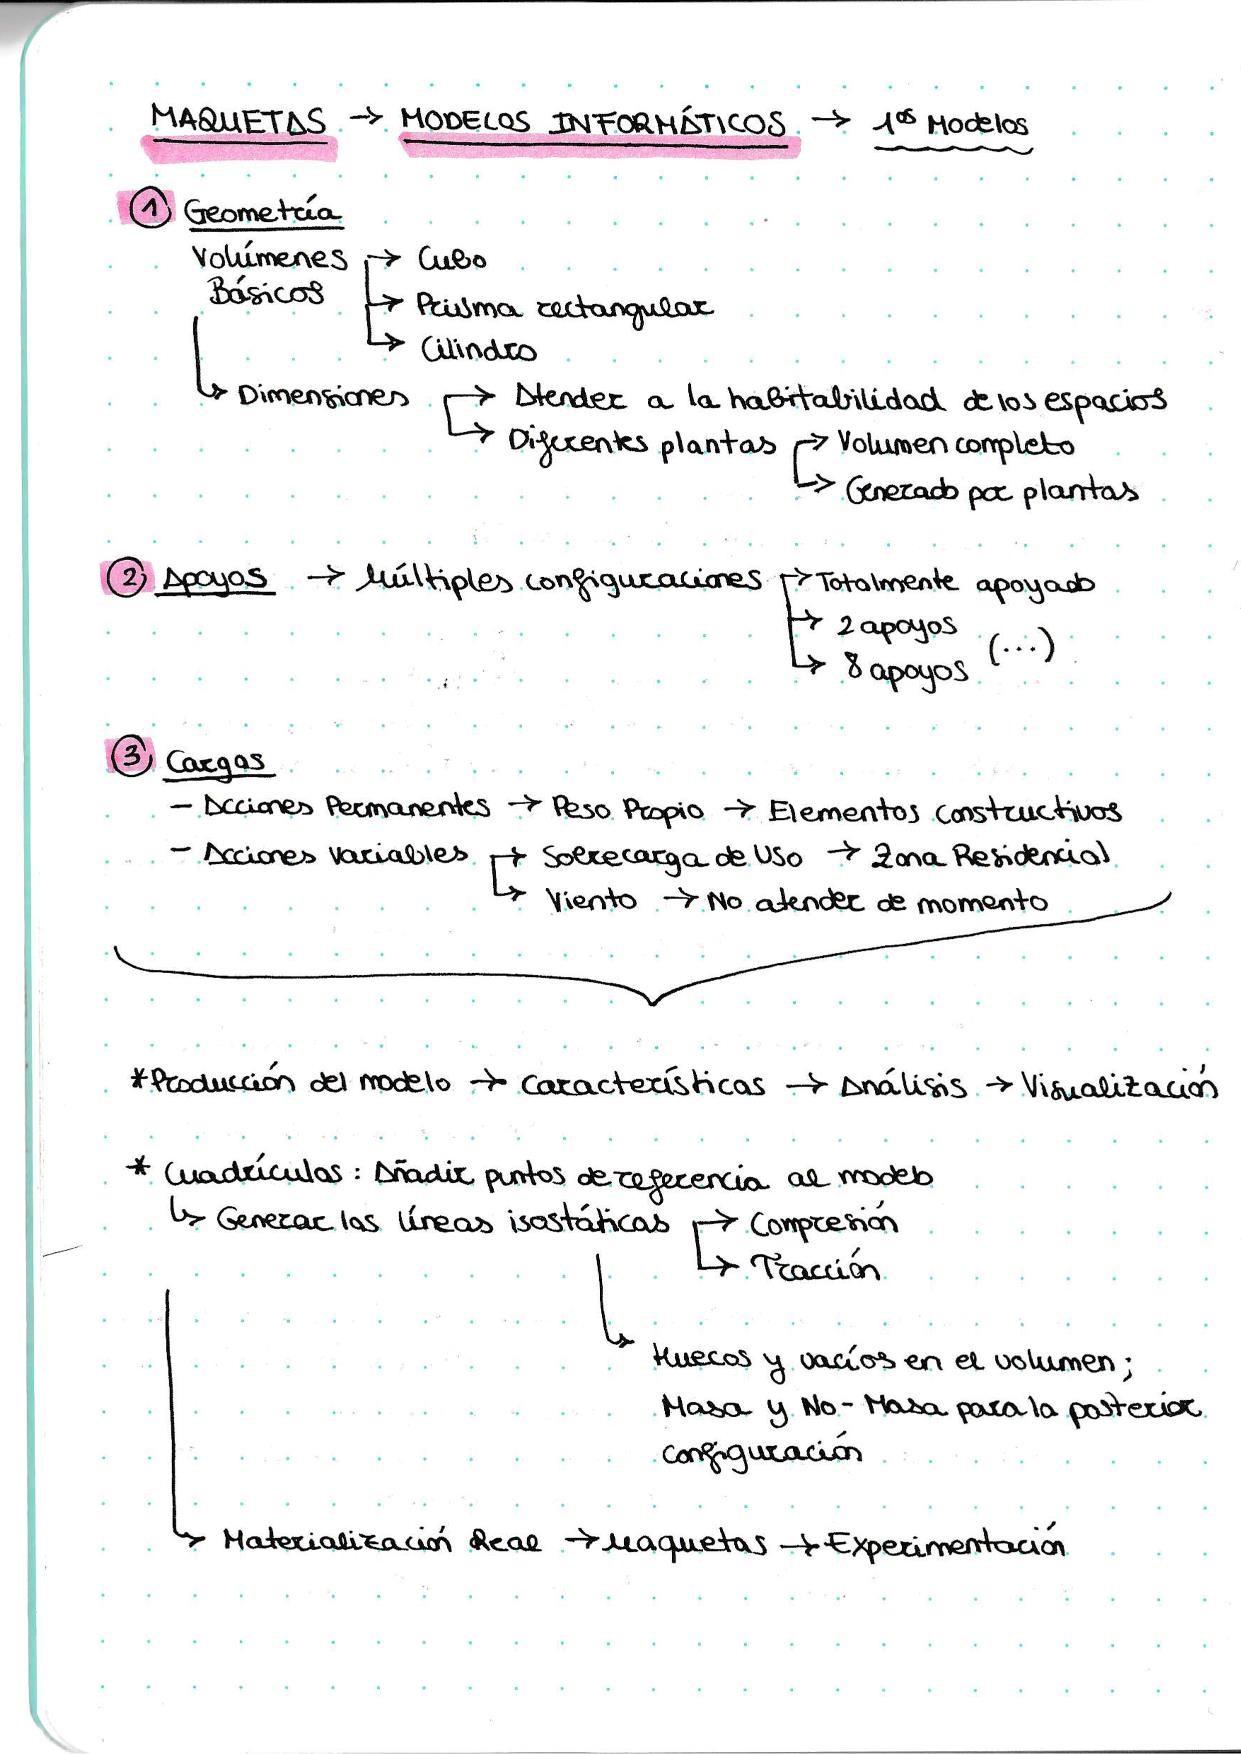 MAQUETAS → MODELOS INFORMÁTICOS → 1os Modelos
① Geometría
Volúmenes → Cubo
Básicos
→ Prisma rectangular
→ Cilindro
→ Dimensiones → Atender a la habitabilidad de los espacios
→ Diferentes plantas → Volumen completo
→ Generado por plantas
② Apoyos → Múltiples configuraciones → Totalmente apoyado
→ 2 apoyos
(...)
→ 8 apoyos
③ Cargas
- Acciones Permanentes → Peso Propio → Elementos constructivos
- Acciones variables → Sobrecarga de Uso → Zona Residencial
→ Viento → No atender de momento
* Producción del modelo → Características → Análisis → Visualización
* Cuadrículas: Añadir puntos de referencia al modelo
→ Generar las líneas isostáticas → Compresión
→ Tracción
→ Huecos y vacíos en el volumen;
Masa y No-Masa para la posterior
configuración
→ Materialización Real → Maquetas → Experimentación